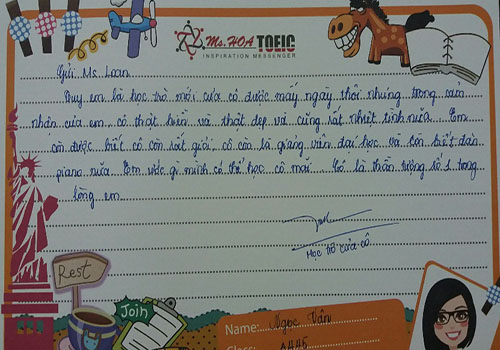 Ms. HOA TOEIC
INSPIRATION MESSENGER
Gửi Ms Loan
Duy em là học trò mới của cô được mấy ngày thôi nhưng trong cảm
nhận của em, cô thật hiền và thật đẹp và cũng rất nhiệt tình nữa. Em
còn được biết cô còn rất giỏi, cô còn là giảng viên đại học và còn biết đàn
piano nữa. Em ước gì mình có thể học cô mãi. Cô là thần tượng số 1 trong
lòng em
Học trò của cô
Rest
Join
Name: Ngọc Vân
Class: A445